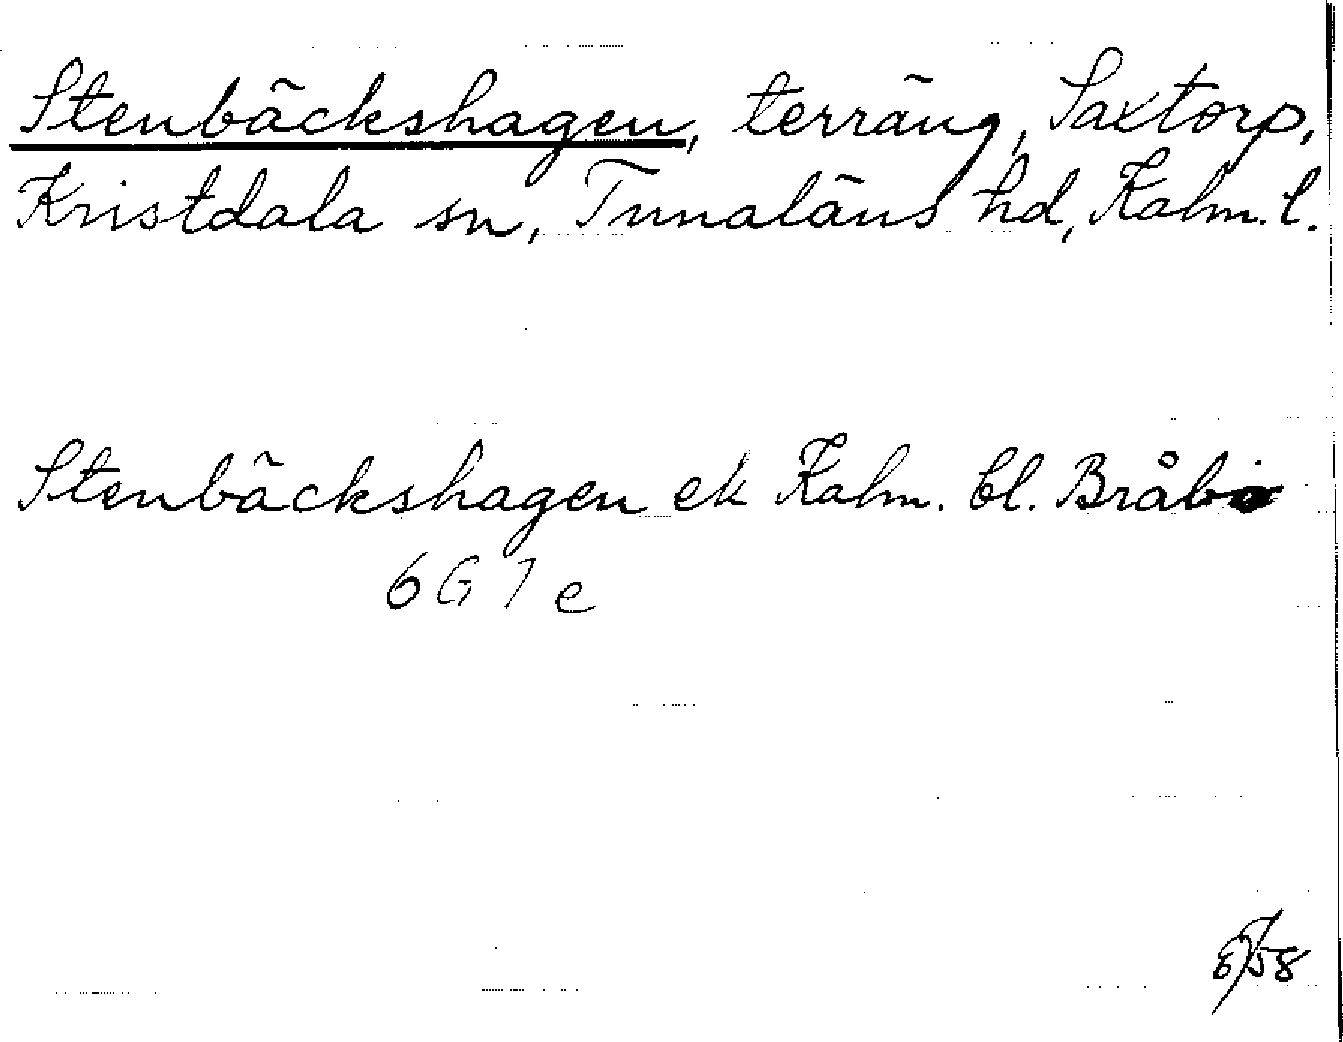 Stenbäckshagen, terräng, Saxtorp,
Kristdala sn, Tunaläns hd, Kalm. l.
Stenbäckshagen ek Kalm. bl. Bråbo
6G 7 e